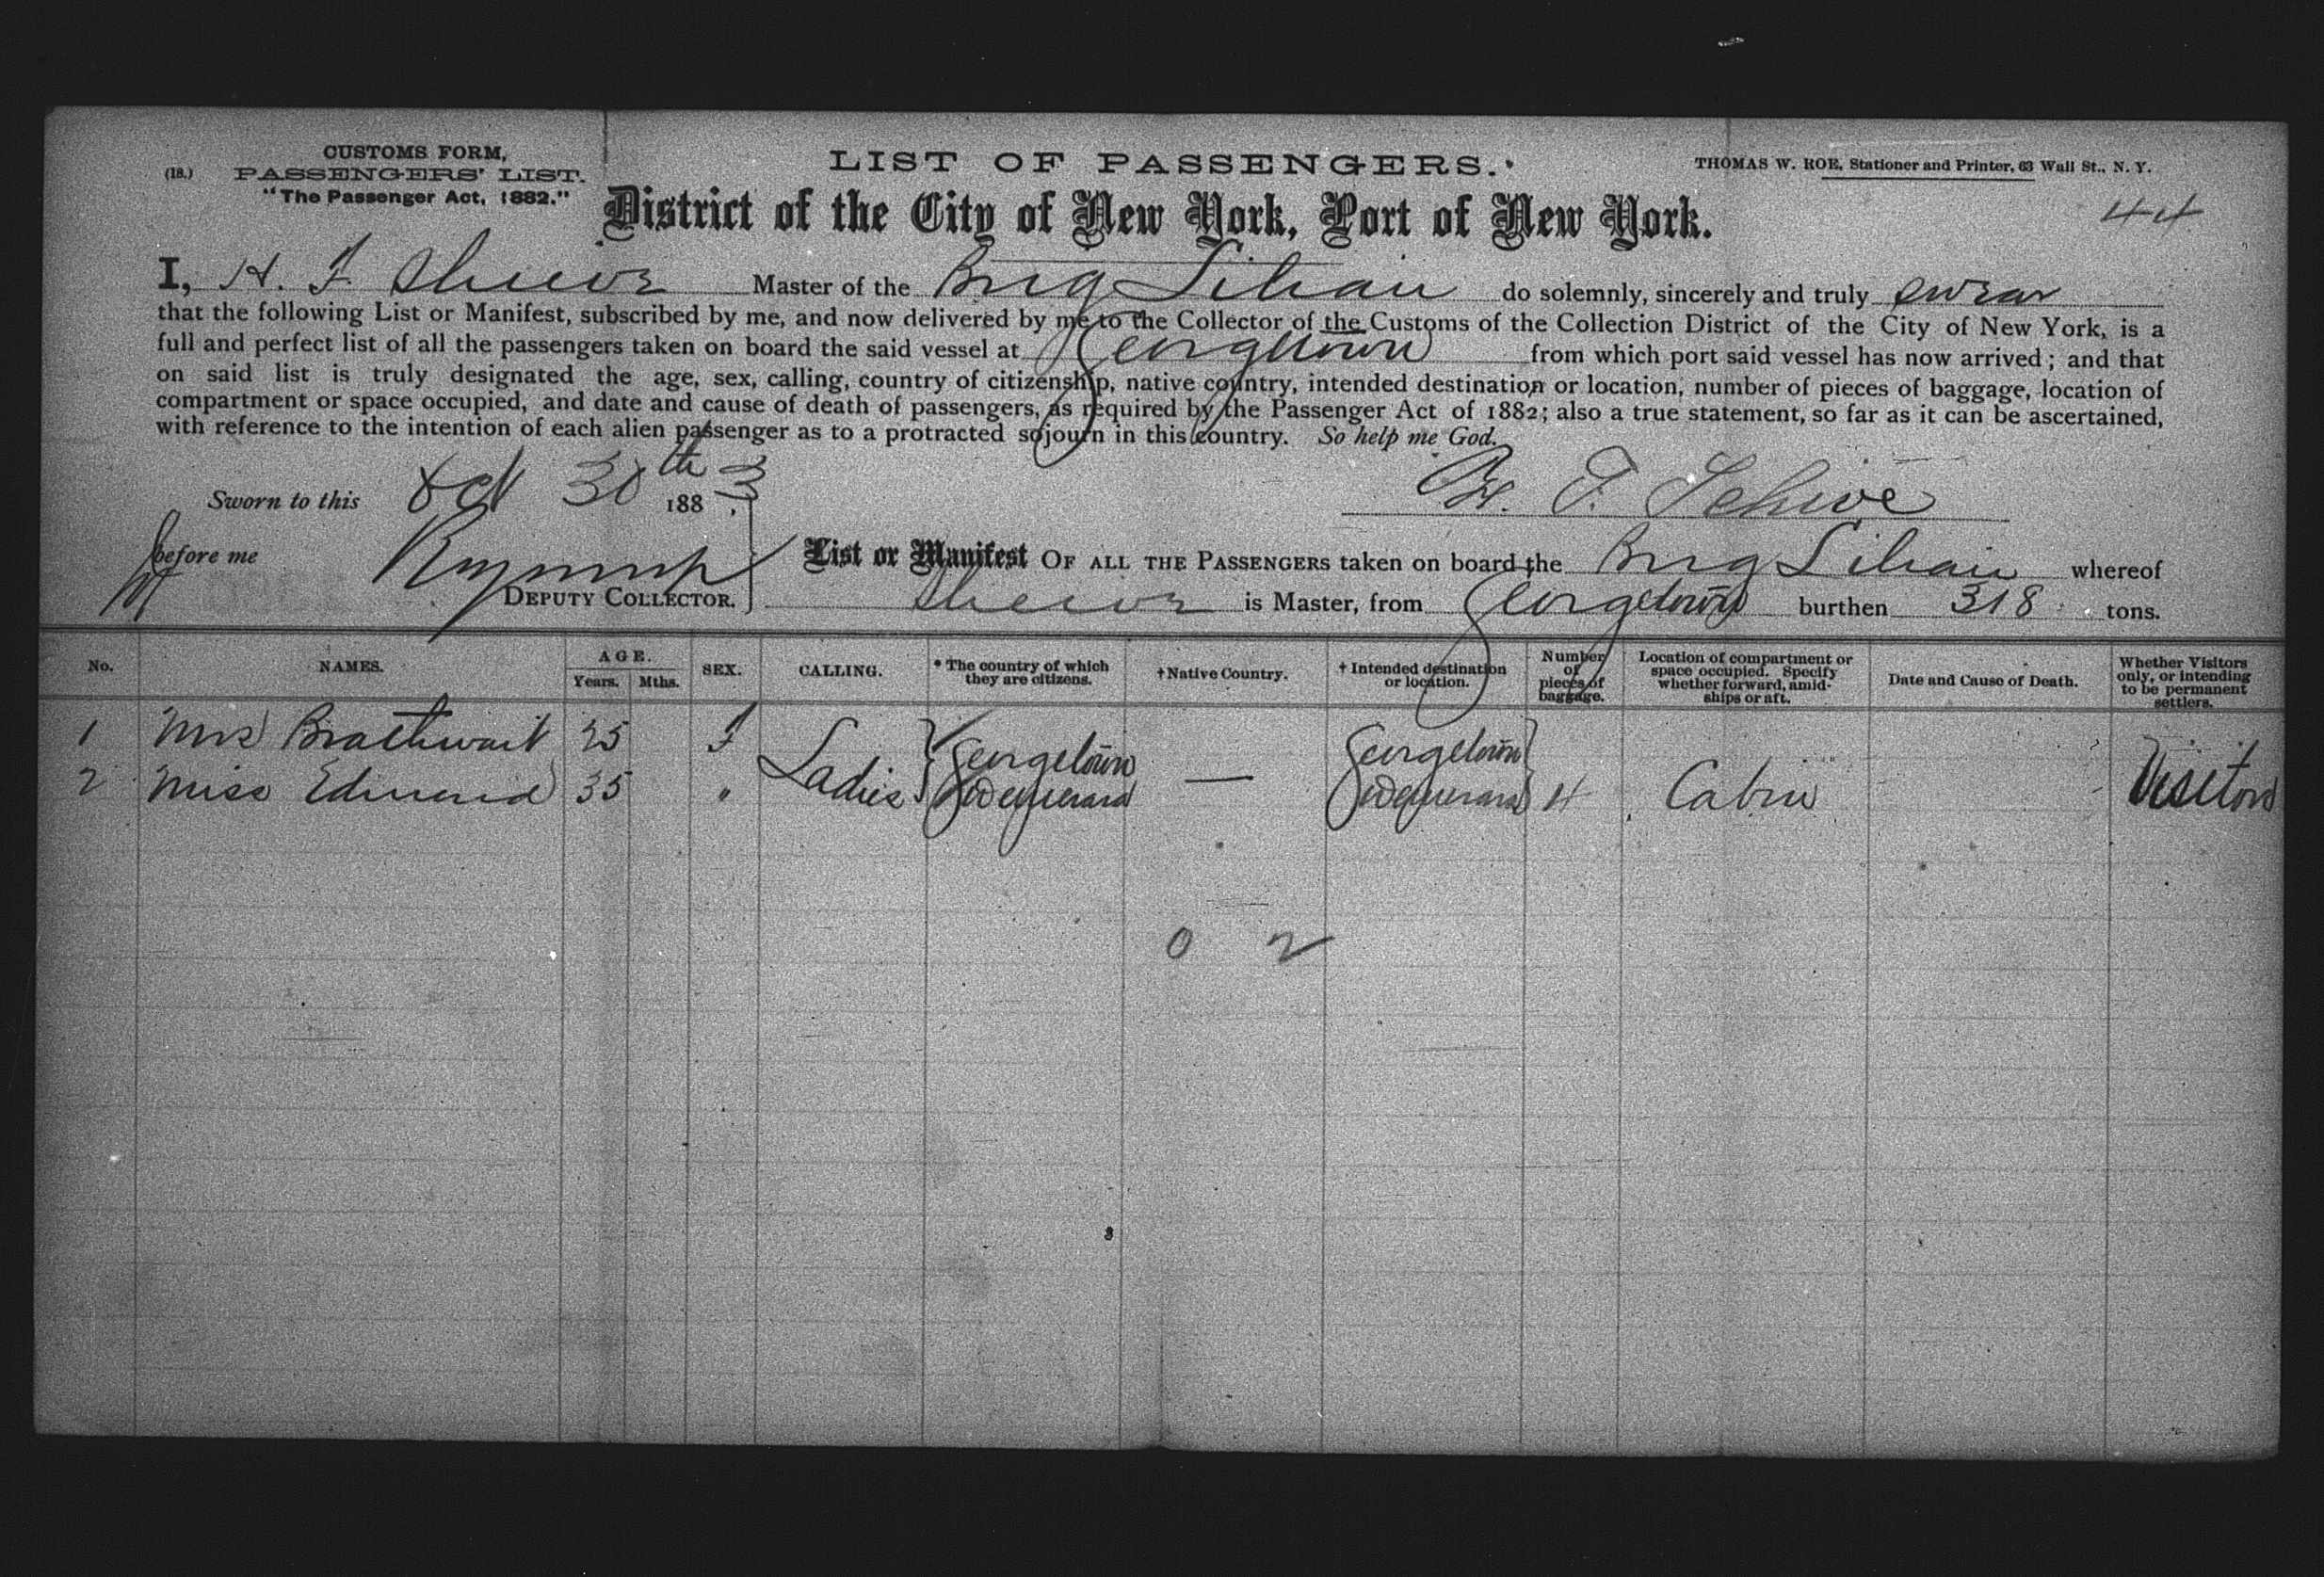 CUSTOMS FORM,
(18.) PASSENGERS' LIST.
"The Passenger Act, 1882."
LIST OF PASSENGERS.
THOMAS W. ROE, Stationer and Printer, 63 Wall St., N. Y.
District of the City of New York, Port of New York.
44
I, H. F. Master of the Brig Lilian do solemnly, sincerely and truly swear
that the following List or Manifest, subscribed by me, and now delivered by me to the Collector of the Customs of the Collection District of the City of New York, is a
full and perfect list of all the passengers taken on board the said vessel at Georgetown from which port said vessel has now arrived; and that
on said list is truly designated the age, sex, calling, country of citizenship, native country, intended destination or location, number of pieces of baggage, location of
compartment or space occupied, and date and cause of death of passengers, as required by the Passenger Act of 1882; also a true statement, so far as it can be ascertained,
with reference to the intention of each alien passenger as to a protracted sojourn in this country. So help me God.
Sworn to this Oct 30th 1883
H. F.
before me
DEPUTY COLLECTOR.
List or Manifest OF ALL THE PASSENGERS taken on board the Brig Lilian whereof
is Master, from Georgetown burthen 318 tons.
No. NAMES. AGE. Years. Mths. SEX. CALLING. * The country of which they are citizens. † Native Country. † Intended destination or location. Number of pieces of baggage. Location of compartment or space occupied. Specify whether forward, amidships or aft. Date and Cause of Death. Whether Visitors only, or intending to be permanent settlers.
1 Mrs Brathwait 25 F Ladies Georgetown — Georgetown
2 Miss Edmond 35 " Demerara Demerara 4 Cabin Visitors
0 2